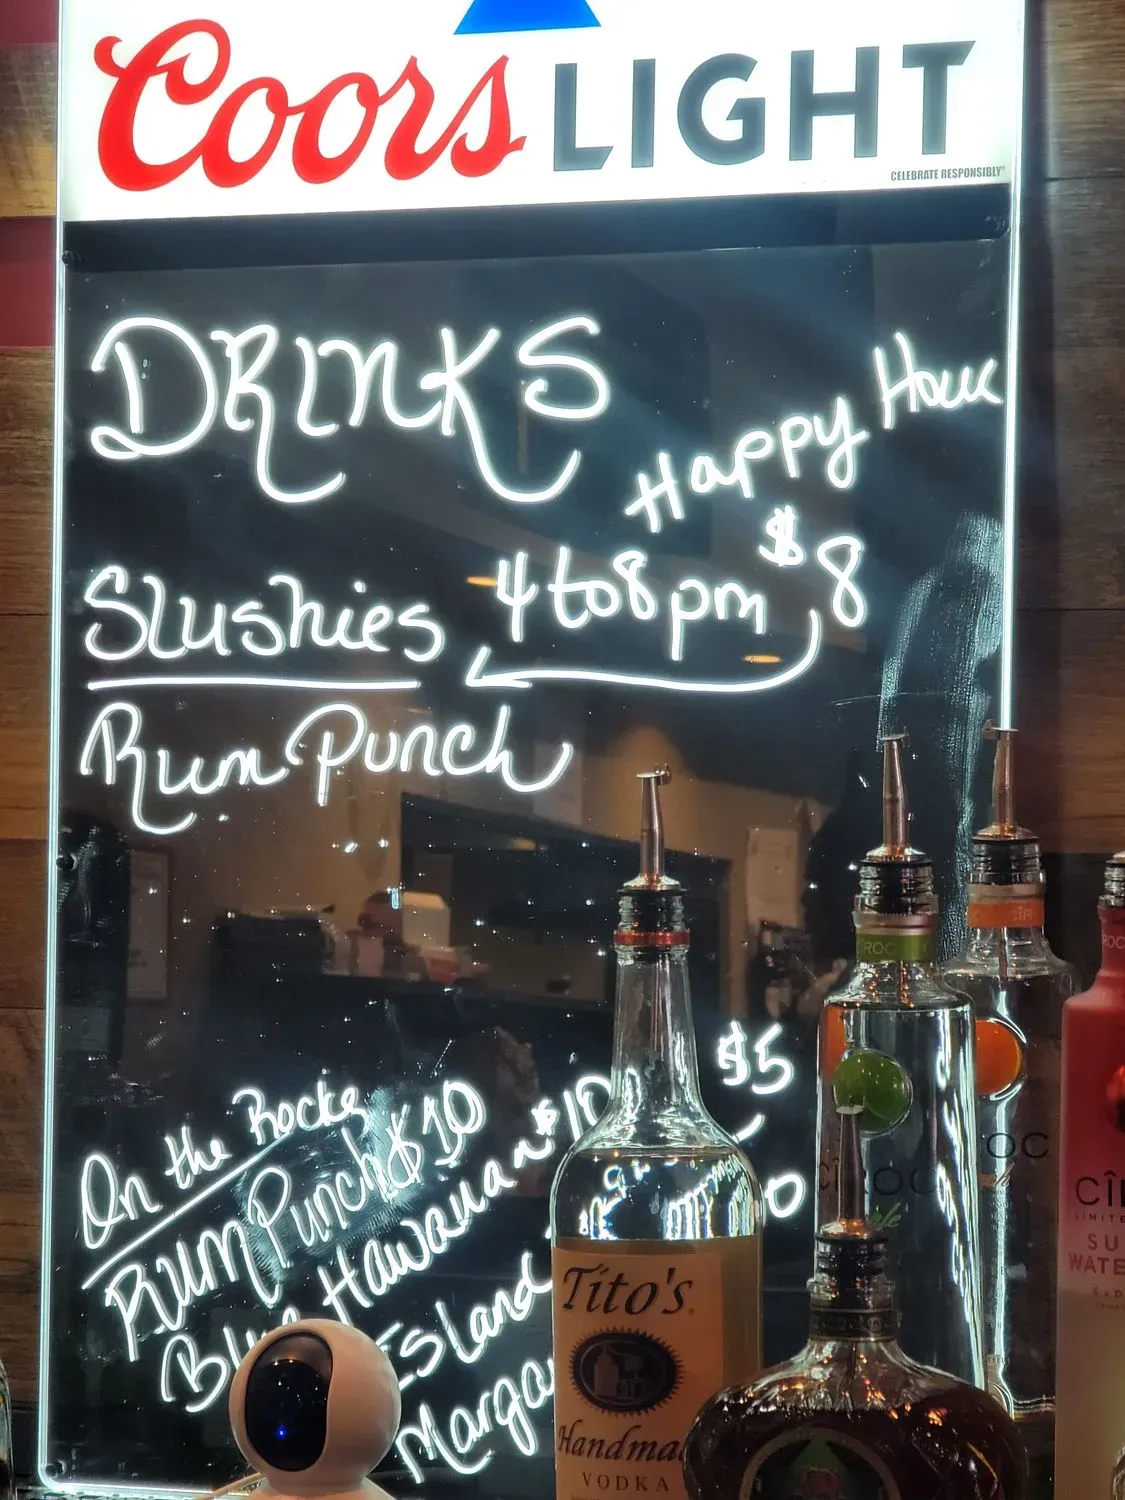 Coors LIGHT
CELEBRATE RESPONSIBLY
DRINKS
Happy Hour
4 to 8 pm $8
Slushies
Rum Punch
On the Rocks
Rum Punch $10
Blue Hawaiian $10
$5
Esland
Tito's
Handma
VODKA
CÎROC
OC
CÎ
LIMITE
SU
WATE